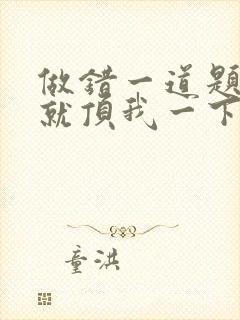 做错一道题
就頂我一下
童洪